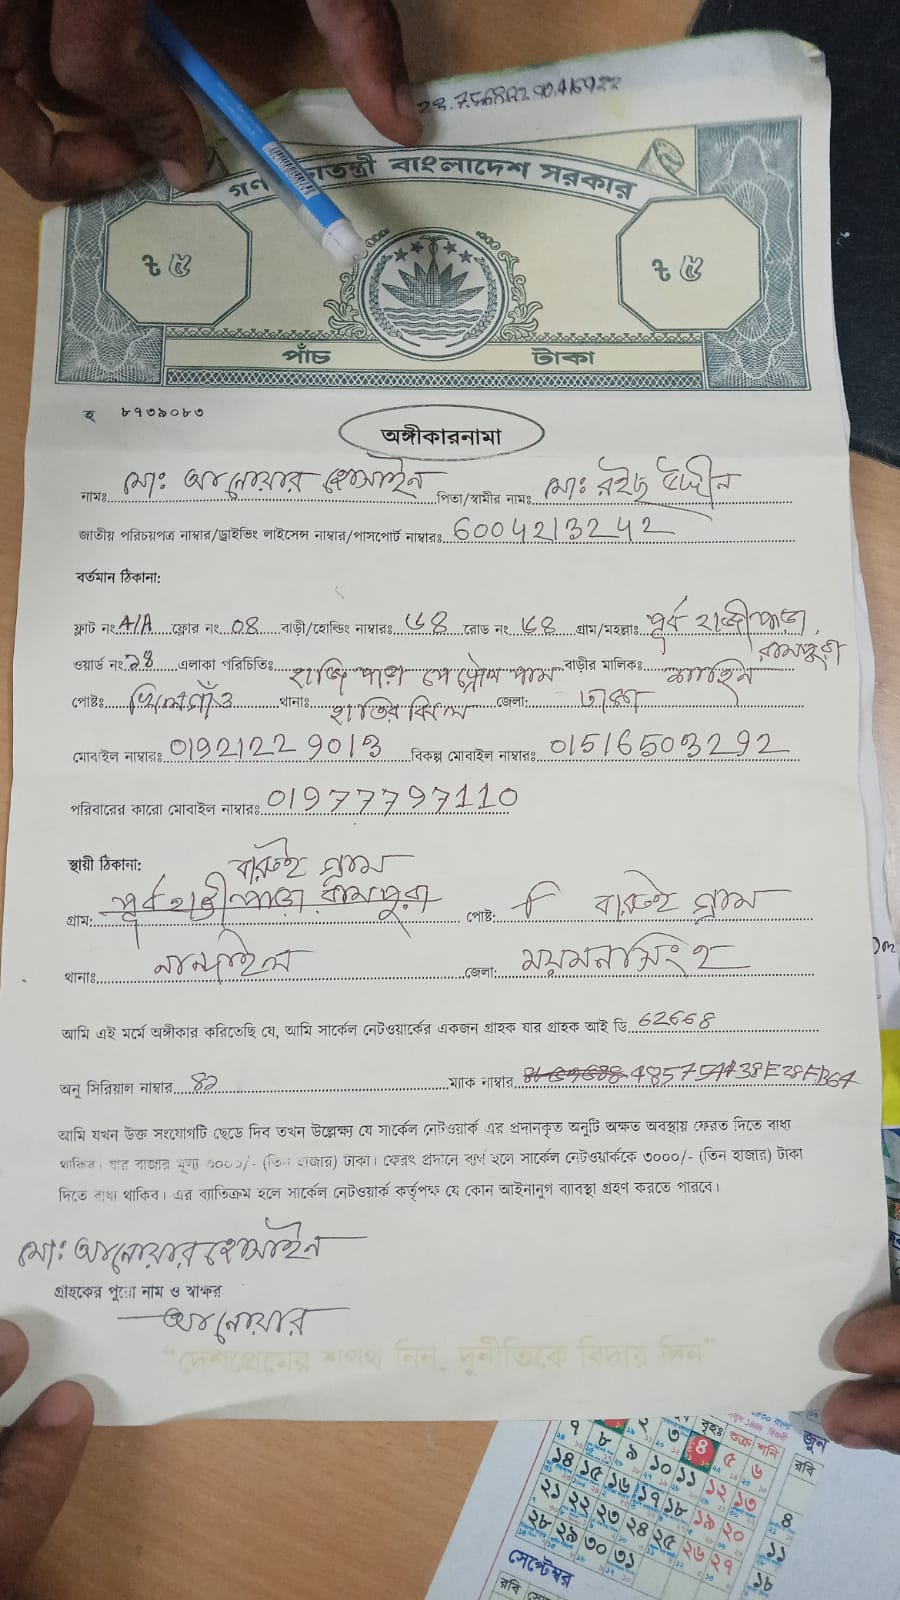 গণ তন্ত্রী বাংলাদেশ সরকার
৳ ৫ ৳ ৫
পাঁচ টাকা
হ ৮৭৩৯০৮৩
অঙ্গীকারনামা
নামঃ মোঃ আনোয়ার হোসাইন পিতা/স্বামীর নামঃ মোঃ রইছ উদ্দীন
জাতীয় পরিচয়পত্র নাম্বার/ড্রাইভিং লাইসেন্স নাম্বার/পাসপোর্ট নাম্বারঃ 6004213242
বর্তমান ঠিকানা:
ফ্লাট নং 4/A ফ্লোর নং 08 বাড়ী/হোল্ডিং নাম্বারঃ ৬৪ রোড নং ৬৪ গ্রাম/মহল্লাঃ পূর্ব হাজীপাড়া, রামপুরা
ওয়ার্ড নং এলাকা পরিচিতিঃ হাজি পাড়া পেট্রোল পাম্প বাড়ীর মালিকঃ
পোষ্টঃ খিলগাঁও থানাঃ হাতির ঝিল জেলা: ঢাকা
মোবাইল নাম্বারঃ 01921229013 বিকল্প মোবাইল নাম্বারঃ 01516503292
পরিবারের কারো মোবাইল নাম্বারঃ 01977797110
স্থায়ী ঠিকানা:
বারুই গ্রাম
গ্রাম: পূর্ব হাজীপাড়া রামপুরা পোষ্ট: বারুই গ্রাম
থানাঃ নান্দাইল জেলা: ময়মনসিংহ
আমি এই মর্মে অঙ্গীকার করিতেছি যে, আমি সার্কেল নেটওয়ার্কের একজন গ্রাহক যার গ্রাহক আই ডি 62668
অনু সিরিয়াল নাম্বার ৪৯ ম্যাক নাম্বার
আমি যখন উক্ত সংযোগটি ছেড়ে দিব তখন উল্লেক্ষ্য যে সার্কেল নেটওয়ার্ক এর প্রদানকৃত অনুটি অক্ষত অবস্থায় ফেরত দিতে বাধ্য
থাকিব। যার বাজার মূল্য ৩০০০/- (তিন হাজার) টাকা। ফেরৎ প্রদানে ব্যর্থ হলে সার্কেল নেটওয়ার্ককে ৩০০০/- (তিন হাজার) টাকা
দিতে বাধ্য থাকিব। এর ব্যাতিক্রম হলে সার্কেল নেটওয়ার্ক কর্তৃপক্ষ যে কোন আইনানুগ ব্যাবস্থা গ্রহণ করতে পারবে।
মোঃ আনোয়ার হোসাইন
গ্রাহকের পুরো নাম ও স্বাক্ষর
আনোয়ার
"দেশপ্রেমের শপথ নিন, দুর্নীতিকে বিদায় দিন"
বৃহঃ শুক্র শনি জুন
৭ ৮ ৯ ৩ ৪ ৫ ৬ রবি
১৪ ১৫ ১৬ ১০ ১১ ১২ ১৩ ৪
২১ ২২ ২৩ ১৭ ১৮ ১৯ ২০ ১১
২৮ ২৯ ৩০ ৩১ ২৪ ২৫ ২৬ ২৭ ১৮
সেপ্টেম্বর
রবি